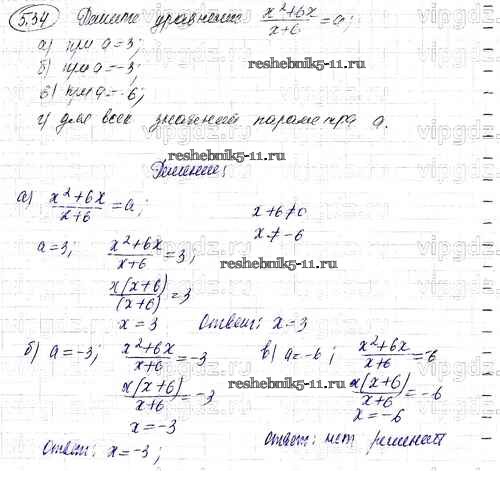 5.34 Решите уравнение x²+6x/x+6 = a;
а) при a=3;
б) при a=-3;
в) при a=-6;
г) для всех значений параметра a.
reshebnik5-11.ru
Решение:
reshebnik5-11.ru
а) x²+6x/x+6 = a;
x+6≠0
x≠-6
a=3; x²+6x/x+6 = 3;
x(x+6)/(x+6) = 3
x = 3 Ответ: x=3
reshebnik5-11.ru
б) a=-3; x²+6x/x+6 = -3
x(x+6)/x+6 = -3
x=-3
Ответ: x=-3;
в) a=-6; x²+6x/x+6 = -6
x(x+6)/x+6 = -6
x=-6
Ответ: нет решений
reshebnik5-11.ru
reshebnik5-11.ru
vipgdz.ru